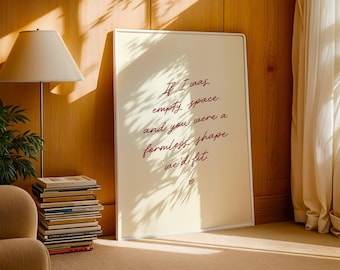 If I was
empty space
and you were a
formless shape
we'd fit